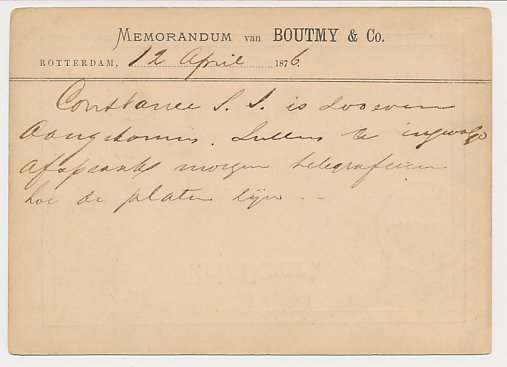 MEMORANDUM van BOUTMY & Co.
ROTTERDAM, 12 April 1876.
Constance S. S. is zooeven
aangekomen. Zullen U ingevolge
afspraak morgen telegrafeeren
hoe de platen zijn. -